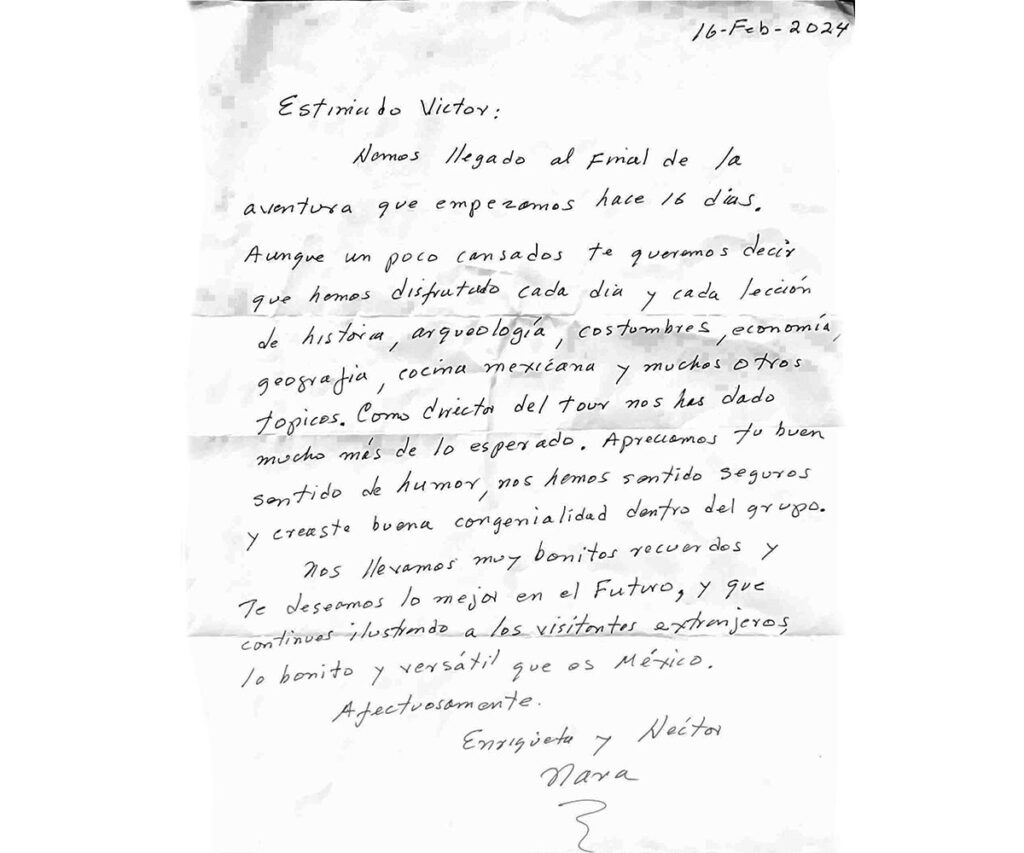 16-Feb-2024
Estimado Victor:
Hemos llegado al Final de la
aventura que empezamos hace 16 dias.
Aunque un poco cansados te queremos decir
que hemos disfrutado cada dia y cada lección
de historia, arqueología, costumbres, economía,
geografia, cocina mexicana y muchos otros
topicos. Como director del tour nos has dado
mucho más de lo esperado. Apreciamos tu buen
sentido de humor, nos hemos sentido seguros
y creaste buena congenialidad dentro del grupo.
Nos llevamos muy bonitos recuerdos y
Te deseamos lo mejor en el Futuro, y que
continues ilustrando a los visitantes extranjeros,
lo bonito y versátil que es México.
Afectuosamente.
Enriqueta y Hector
Nava